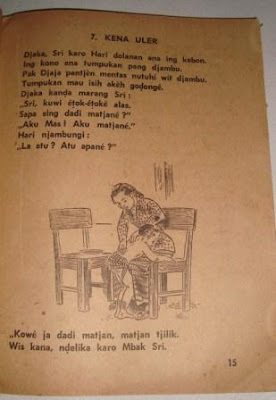 7. KENA ULER
Djaka, Sri karo Hari dolanan ana ing kebon.
Ing kono ana tumpukan pang djambu.
Pak Djaja pantjèn mentas nutuhi wit djambu.
Tumpukan mau isih akèh goḍongé.
Djaka kanḍa marang Sri:
„Sri, kuwi éṭok-éṭoké alas.
Sapa sing dadi matjané?"
„Aku Mas! Aku matjané."
Hari njambungi:
„La atu? Atu apané?"
„Kowé ja dadi matjan, matjan tjilik.
Wis kana, nḍelika karo Mbak Sri.
15